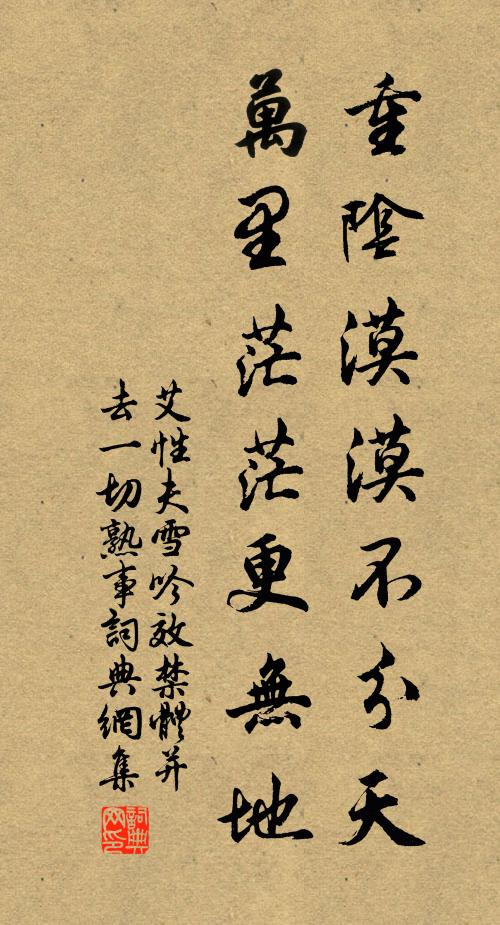 重陰漠漠不分天
萬里茫茫更無地
艾性夫雪吟效禁體并
去一切熟事詞典網集
詞典
网印